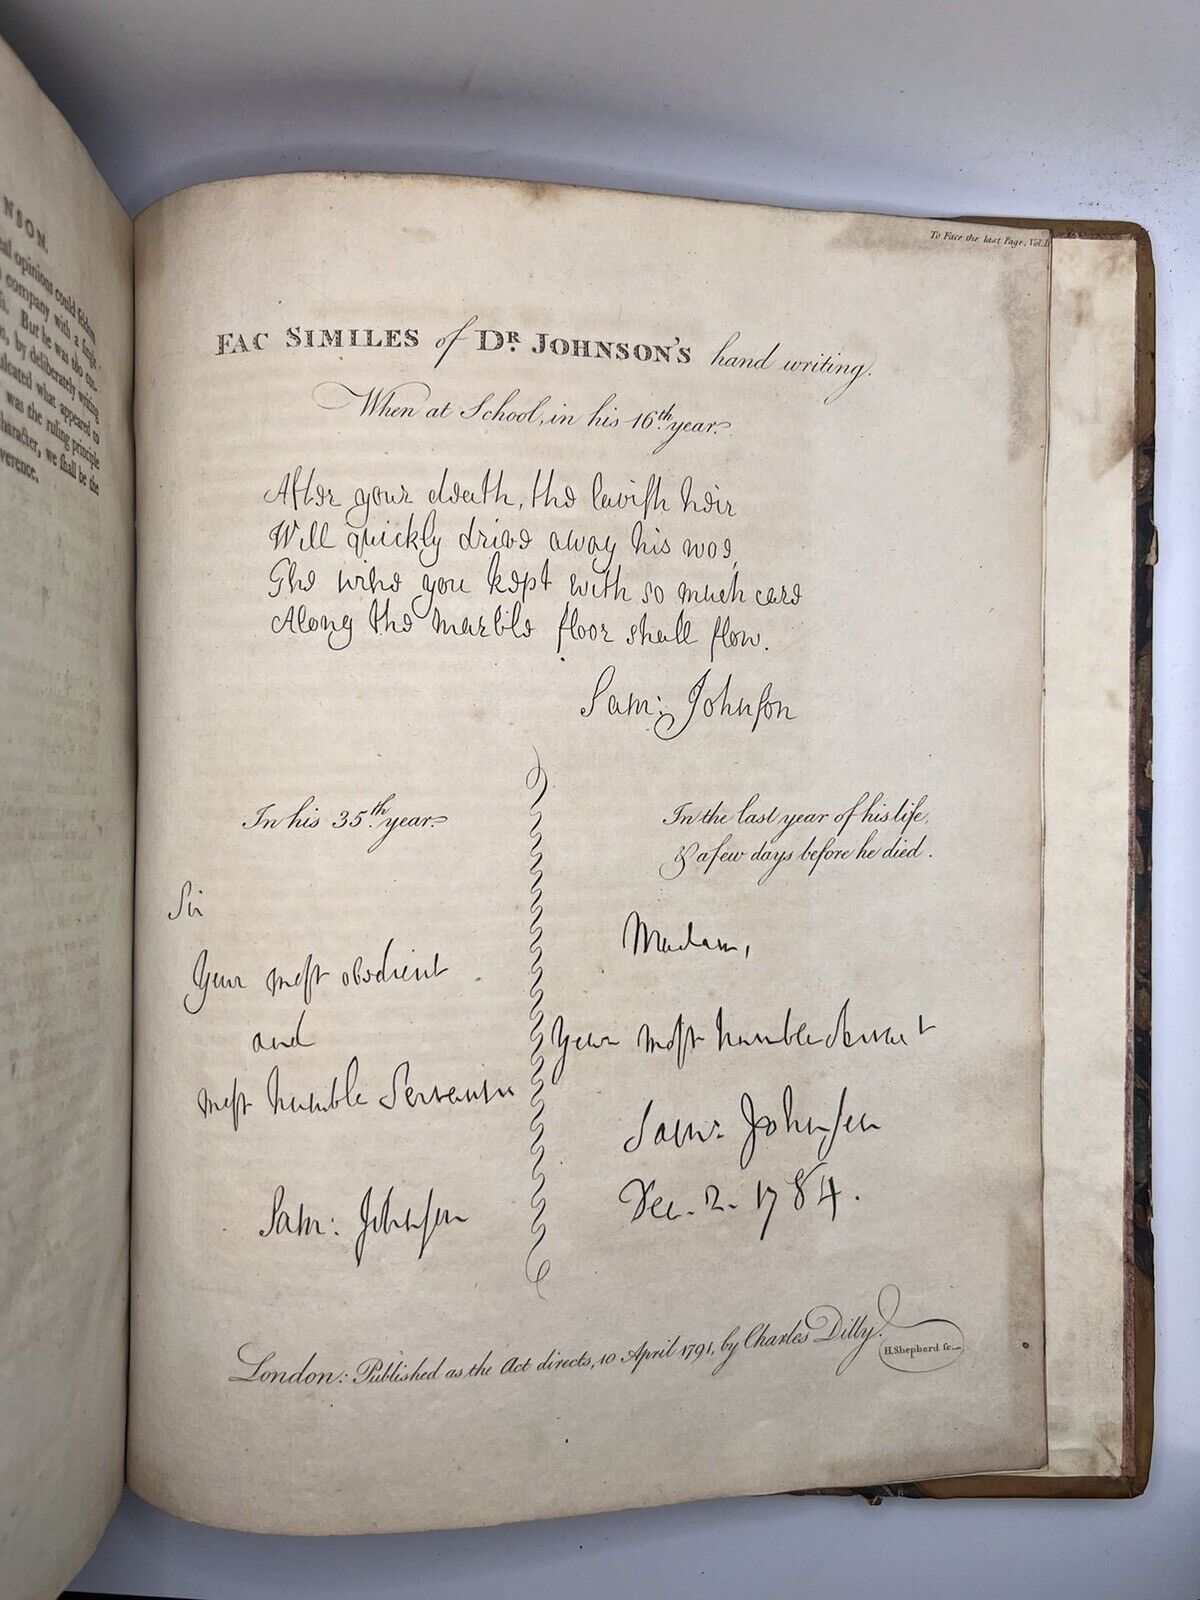 NSON.
al opinions could seldom
company with a single
But he was too con-
by deliberately writing
dicated what appeared to
was the ruling principle
haracter, we ſhall be the
verence.
To Face the last Page, Vol. II
FAC SIMILES of DR. JOHNSON'S hand writing.
When at School, in his 16th. year.
After your death, the laviſh heir
Will quickly drive away his woe,
The wine you kept with so much care
Along the marble floor shall flow.
Sam: Johnſon
In his 35th. year.
Sir
Your moſt obedient
and
moſt humble Servant
Sam: Johnſon
In the last year of his life,
& a few days before he died.
Madam,
Your moſt humble servant
Sam: Johnſon
Dec. 2. 1784.
London: Published as the Act directs, 10 April 1791, by Charles Dilly.
H. Shepherd Sc.